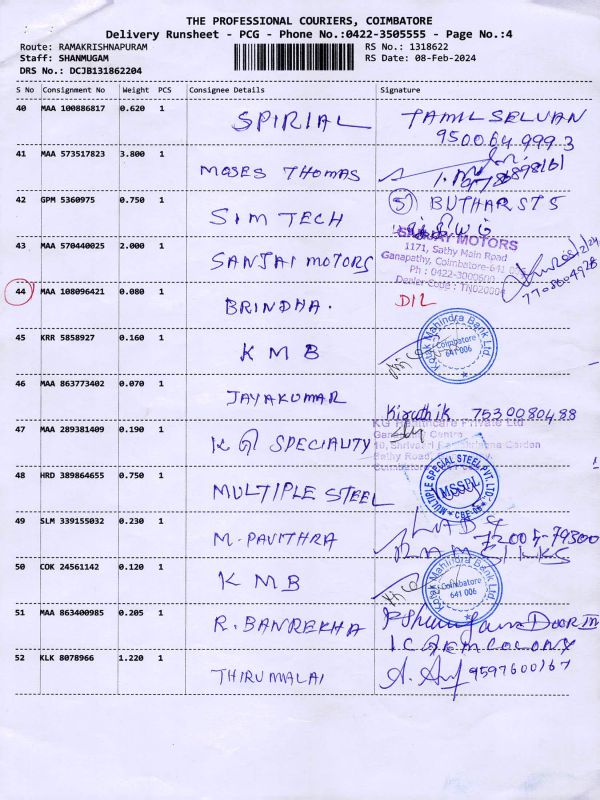 THE PROFESSIONAL COURIERS, COIMBATORE
Delivery Runsheet - PCG - Phone No.:0422-3505555 - Page No.:4
Route: RAMAKRISHNAPURAM RS No.: 1318622
Staff: SHANMUGAM RS Date: 08-Feb-2024
DRS No.: DCJB131862204
S No Consignment No Weight PCS Consignee Details Signature
40 MAA 100886817 0.620 1 SPIRIAL TAMIL SELVAN
9500649993
41 MAA 573517823 3.800 1 MOSES THOMAS
42 GPM 5360975 0.750 1 SIM TECH 5) BUTHARST5
43 MAA 570440025 2.000 1 SANJAI MOTORS SANJAY MOTORS
1171, Sathy Main Road
Ganapathy, Coimbatore-641
Ph : 0422-3000600
Dealer Code : TN020004
7708804928
44 MAA 108096421 0.080 1 BRINDHA. D/L
45 KRR 5858927 0.160 1 KMB Kotak Mahindra Bank Ltd.
Coimbatore
641 006
46 MAA 863773402 0.070 1 JAYAKUMAR Kiruthik 7530080488
47 MAA 289381409 0.190 1 KG SPECIALITY KG Healthcare Private Ltd
48 HRD 389864655 0.750 1 MULTIPLE STEEL MULTIPLE SPECIAL STEEL PVT. LTD.
MSSPL
CBE-06
49 SLM 339155032 0.230 1 M. PAVITHRA 72004-79300
50 COK 24561142 0.120 1 KMB Kotak Mahindra Bank Ltd.
Coimbatore
641 006
51 MAA 863400985 0.205 1 R. BANREKHA DOOR III
52 KLK 8078966 1.220 1 THIRUMALAI 9597600167